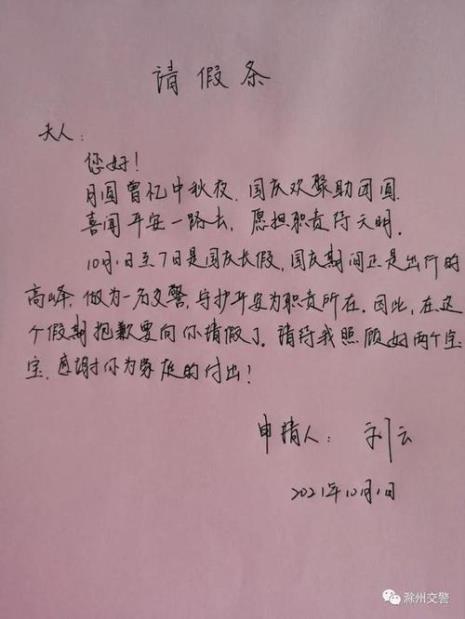 请假条
夫人：
您好！
月圆曾忆中秋夜，国庆欢聚助团圆
喜闻平安一路去，愿担职责待天明.
10月1日至7日是国庆长假，国庆期间正是出行的
高峰，做为一名交警，守护平安为职责所在。因此，在这
个假期抱歉要向你请假了。请待我照顾好两个宝
宝.感谢你为家庭的付出！
申请人：刘云
2021年10月1日
滁州交警